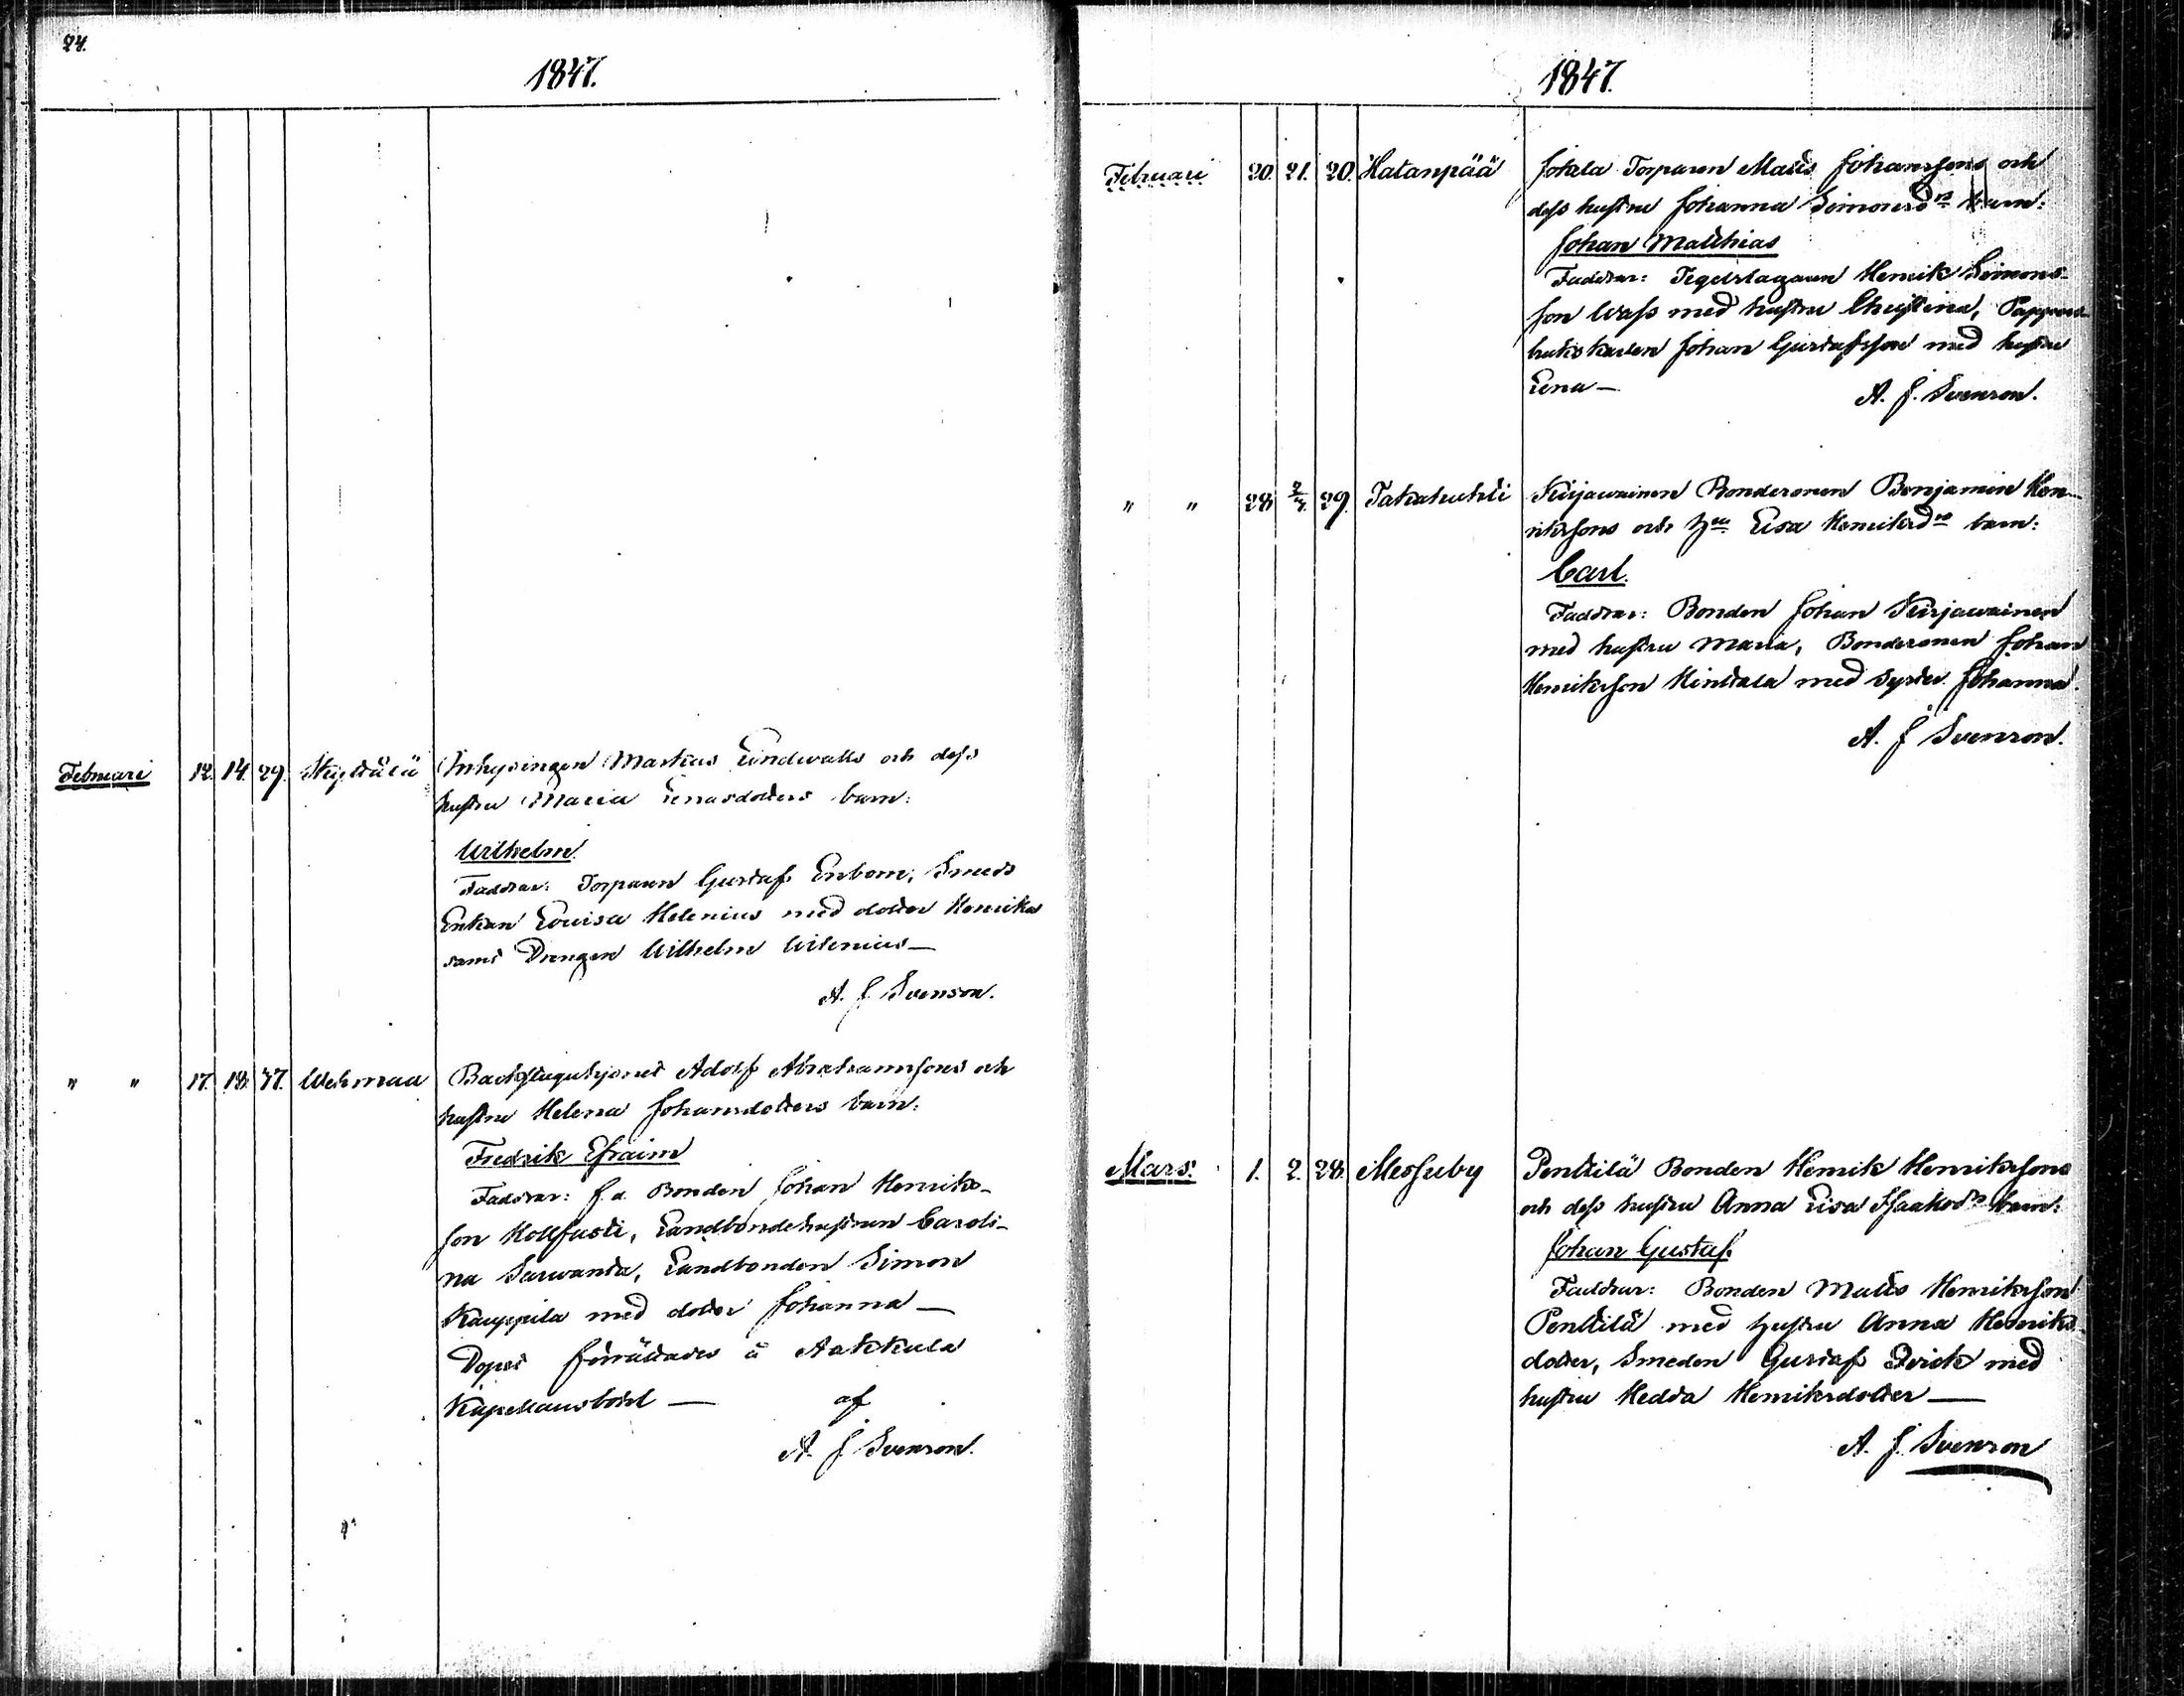 24.
1847.
Februari 12. 14. 29. Skyttälä Inhysingen Markus Lindwalls och dess
hustru Maria Enasdotters barn:
Wilhelm.
Faddrar: Torparen Gustaf Enbom, Smeds
Enkan Lovisa Helenius med dotter Henrika
samt Drengen Wilhelm Wilenius—
A. J. Svenson.
" " 17. 18. 37. Wehmaa Backstuguhjonet Adolf Abrahamssons och
hustru Helena Johansdotters barn:
Fredrik Efraim
Faddrar: f. d. Bonden Johan Henriks-
son Kollfusti, Landbondehustrun Caroli-
na Sarwanta, Landbonden Simon
Kauppila med dotter Johanna—
Dopet förrättades å Aakkula
Kapellansbohl— af
A. J. Svenson.
1847.
Februari 20. 21. 20. Hatanpää Jokela Torparen Matts Johanssons och
dess hustru Johanna Simonsdrs barn:
Johan Matthias
Faddrar: Tegelslagaren Henrik Simons-
son Wass med hustru Christina, Pappers-
brukskarlen Johan Gustafsson med hustru
Lena— A. J. Svenson.
" " 28. 2/3. 29. Takahuhti Kirjawainen Bondesonen Benjamin Hen-
rikssons och hu Lisa Henriksdrs barn:
Carl.
Faddrar: Bonden Johan Kirjawainen
med hustru Maria, Bondesonen Johan
Henriksson Hinttala med syster Johanna.
A. J Svenson.
Mars. 1. 2. 28. Messuby Penttilä Bonden Henrik Henrikssons
och dess hustru Anna Lisa Isaaksdrs barn:
Johan Gustaf
Faddrar: Bonden Matts Henriksson
Penttilä med hustru Anna Henriks
dotter, Smeden Gustaf Qvick med
hustru Hedda Henriksdotter—
A. J. Svenson